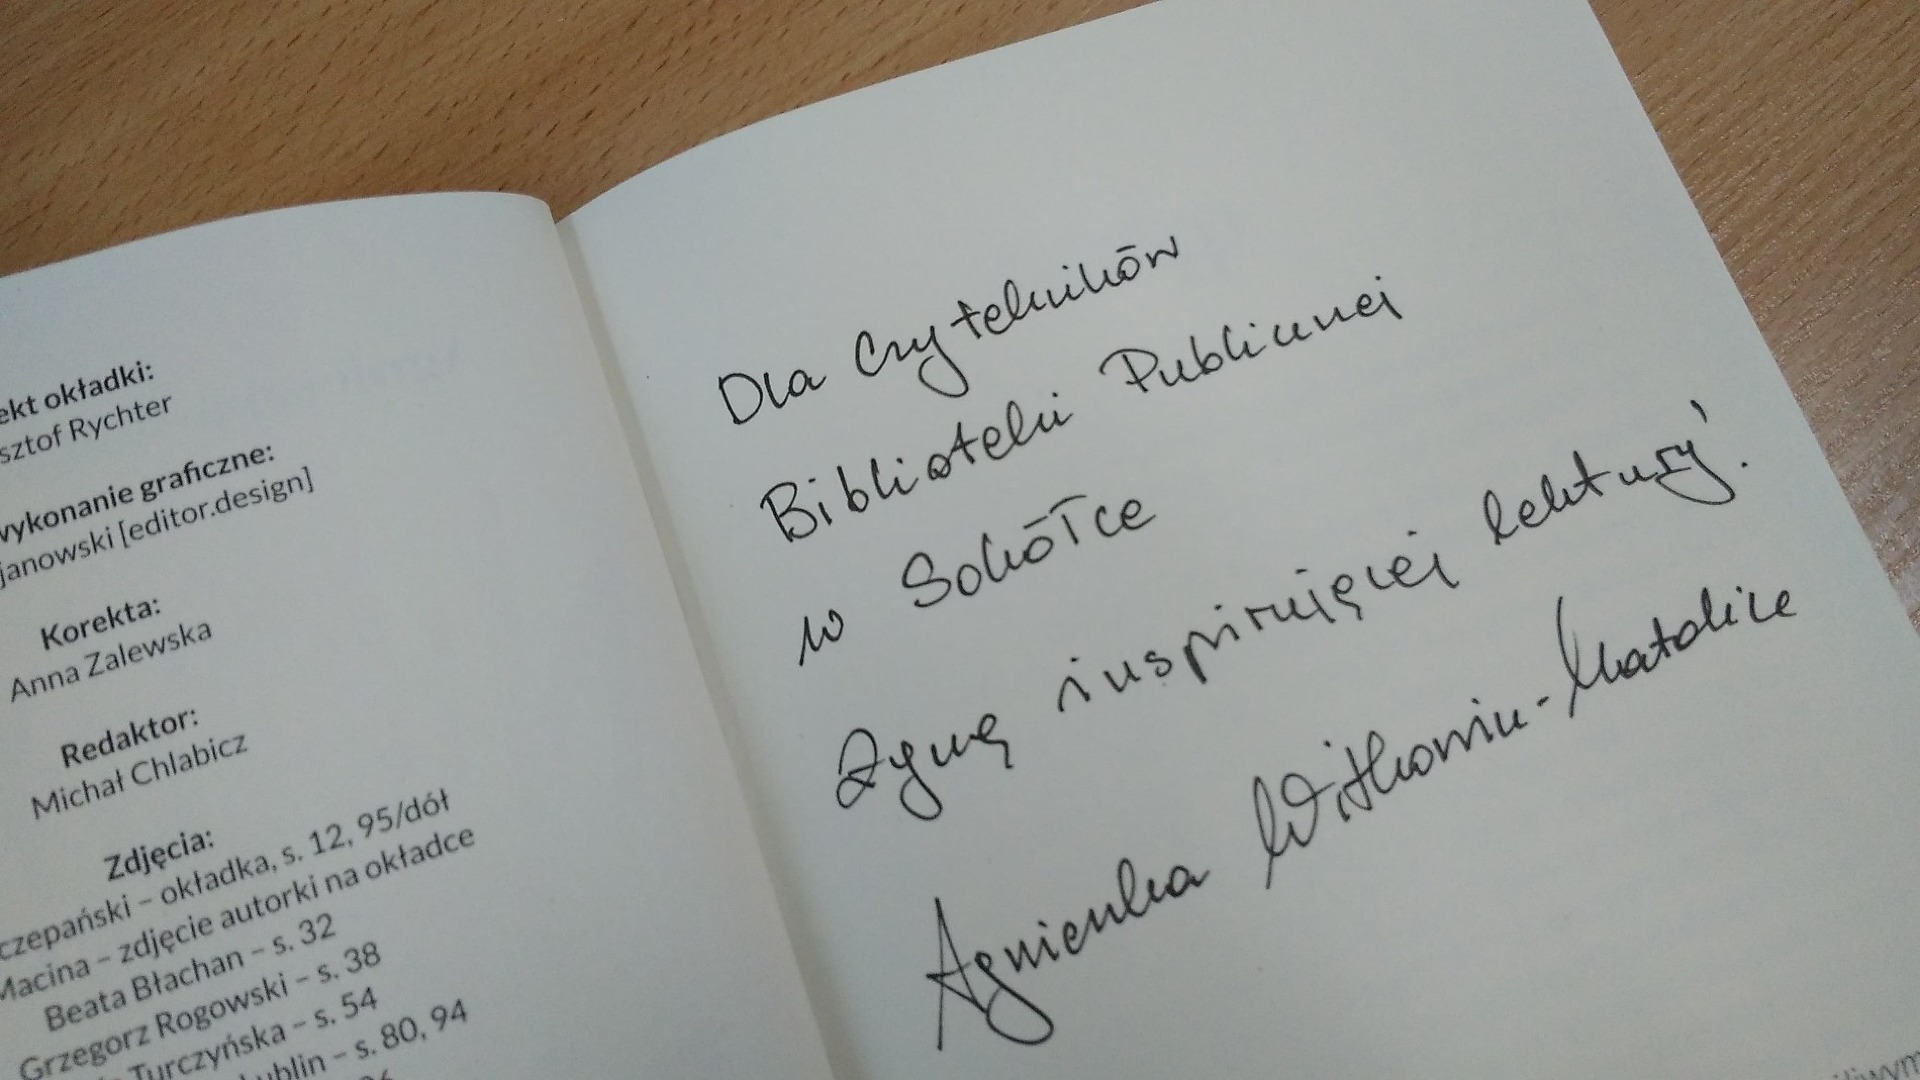 ekt okładki:
sztof Rychter
wykonanie graficzne:
janowski [editor.design]
Korekta:
Anna Zalewska
Redaktor:
Michał Chlabicz
Zdjęcia:
czepański – okładka, s. 12, 95/dół
Macina – zdjęcie autorki na okładce
Beata Błachan – s. 32
Grzegorz Rogowski – s. 38
Turczyńska – s. 54
ublin – s. 80, 94
Dla Czytelników
Biblioteki Publicznej
w Sokółce
Życzę inspirującej lektury!
Agnieszka Witkowicz-Matolicz